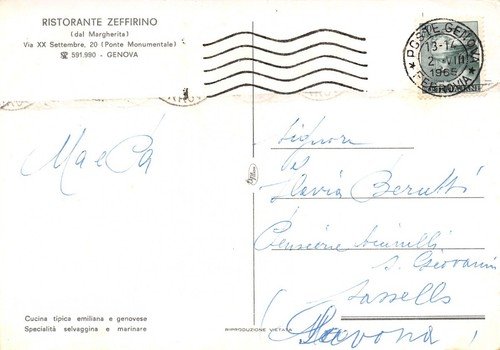 RISTORANTE ZEFFIRINO
(dal Margherita)
Via XX Settembre, 20 (Ponte Monumentale)
☎ 591.990 - GENOVA
POSTE GENOVA
13-14
1965
FERROVIA
Ma e Cà
Signora
Flavia Berutti
Pensione
S. Giovanni
Sassello
(Savona)
Cucina tipica emiliana e genovese
Specialità selvaggina e marinare
RIPRODUZIONE VIETATA